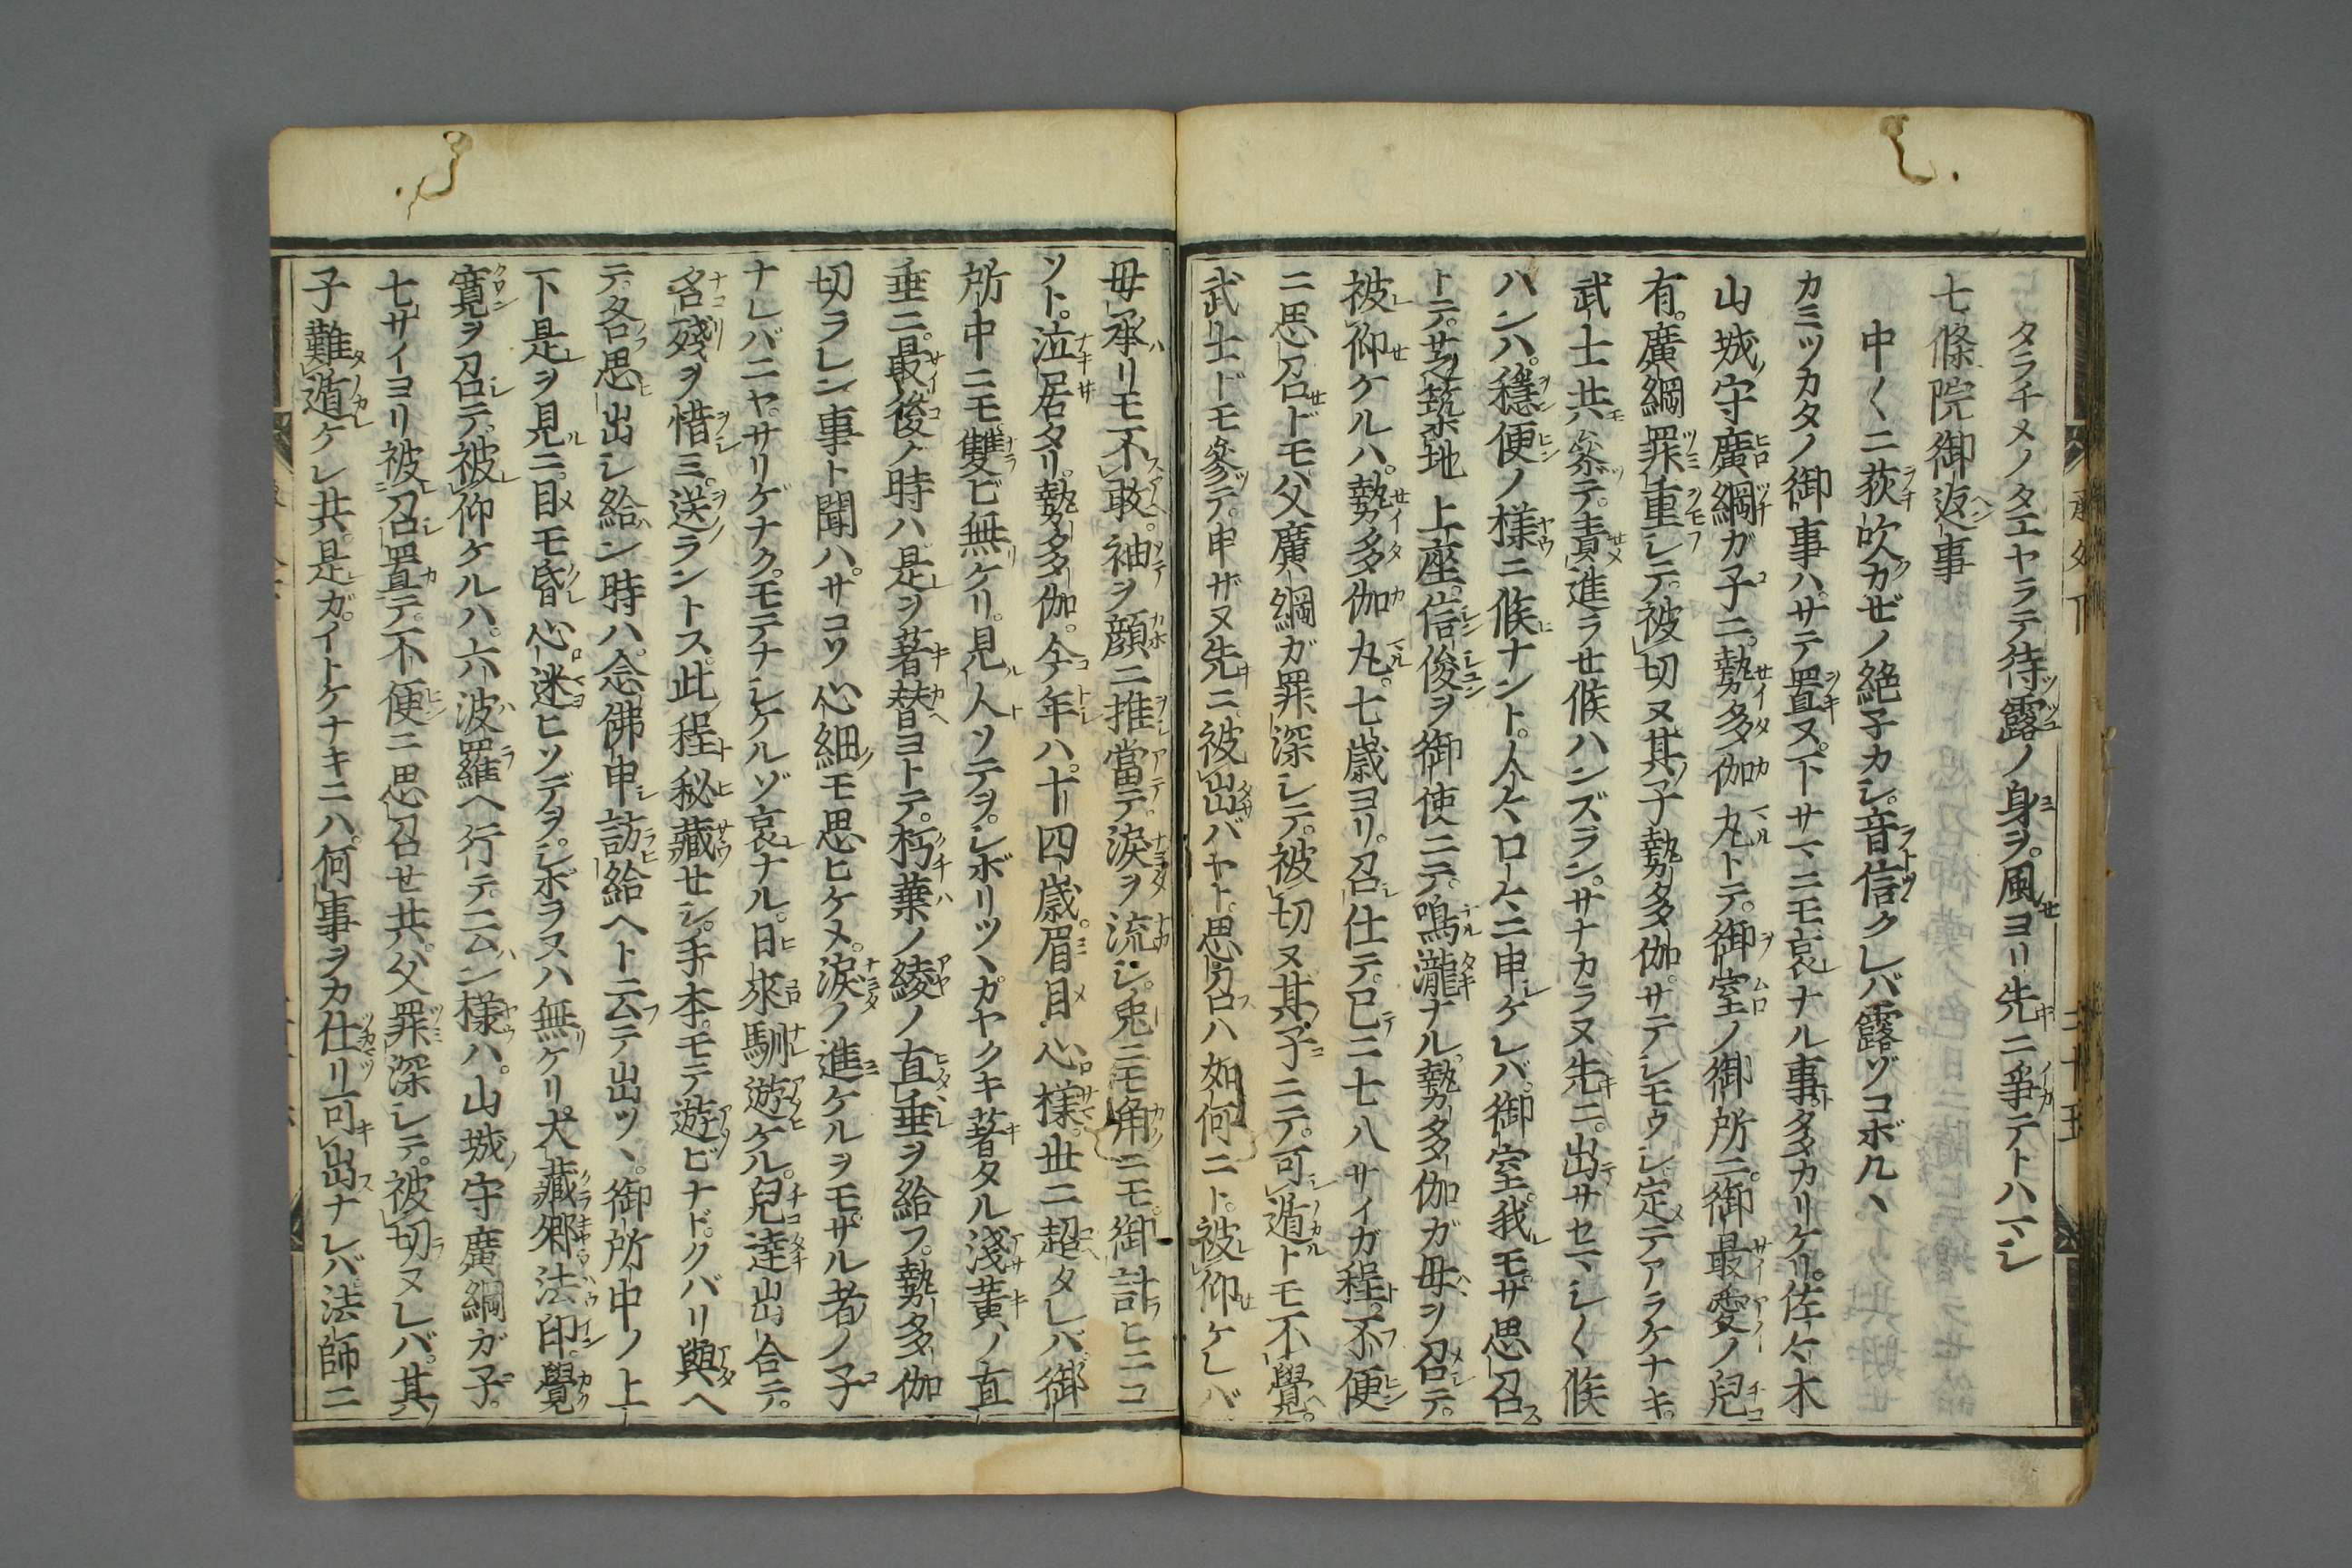 タラチメノタエヤラテ待露ノ身ヲ風ヨリ先ニ爭テトハマシ
七條院御返事
中〱ニ荻吹カゼノ絶子カシ音信クレバ露ゾコボルヽ
カミツカタノ御事ハサテ置ヌ下サマニモ哀ナル事多カリケリ佐々木
山城守廣綱ガ子ニ勢多伽丸トテ御室ノ御所ニ御最愛ノ兒
有廣綱罪重シテ被切ヌ其子勢多伽サテシモウシ定テアラケナキ
武士共參テ責進ラセ候ハンズランサナカラヌ先ニ出サセマシ〱候
ハンハ穩便ノ様ニ候ナント人々口々ニ申ケレバ御室我モサ思召
トテ芝築地上座信俊ヲ御使ニテ鳴瀧ナル勢多伽ガ母ヲ召テ
被仰ケルハ勢多伽丸七歳ヨリ召仕テ已ニ七八サイガ程不便
ニ思召ドモ父廣綱ガ罪深シテ被切ヌ其子ニテ可遁トモ不覺
武士ドモ參テ申ザヌ先ニ被出バヤト思召ハ如何ニト被仰ケレバ
母承リモ不敢袖ヲ顔ニ推當テ涙ヲ流シ兎ニモ角ニモ御計ヒニコ
ソト泣居タリ勢多伽今年ハ十四歳眉目心様世ニ超タレバ御
所中ニモ雙ビ無ケリ見人ソデヲシボリツヽカヤクキ著タル淺黄ノ直
垂ニ最後ノ時ハ是ヲ著替ヨトテ朽葉ノ綾ノ直垂ヲ給フ勢多伽
切ラレン事ト聞ハサコソ心細モ思ヒケメ涙ノ進ケルヲモサル者ノ子
ナレバニヤサリゲナクモテナシケルゾ哀ナル日來馴遊ケル兒達出合テ
名殘ヲ惜ミ送ラントス此程秘藏セシ手本モテ遊ビナドクバリ與ヘ
テ各思出シ給ン時ハ念佛申訪給ヘト云テ出ツヽ御所中ノ上
下是ヲ見ニ目モ昏心迷ヒソデヲシボラヌハ無ケリ大藏卿法印覺
寛ヲ召テ被仰ケルハ六波羅ヘ行テ云ン様ハ山城守廣綱ガ子
七サイヨリ被召置テ不便ニ思召セ共父罪深シテ被切ヌレバ其
子難遁ケレ共是ガイトケナキニハ何事ヲカ仕リ可出ナレバ法師ニ